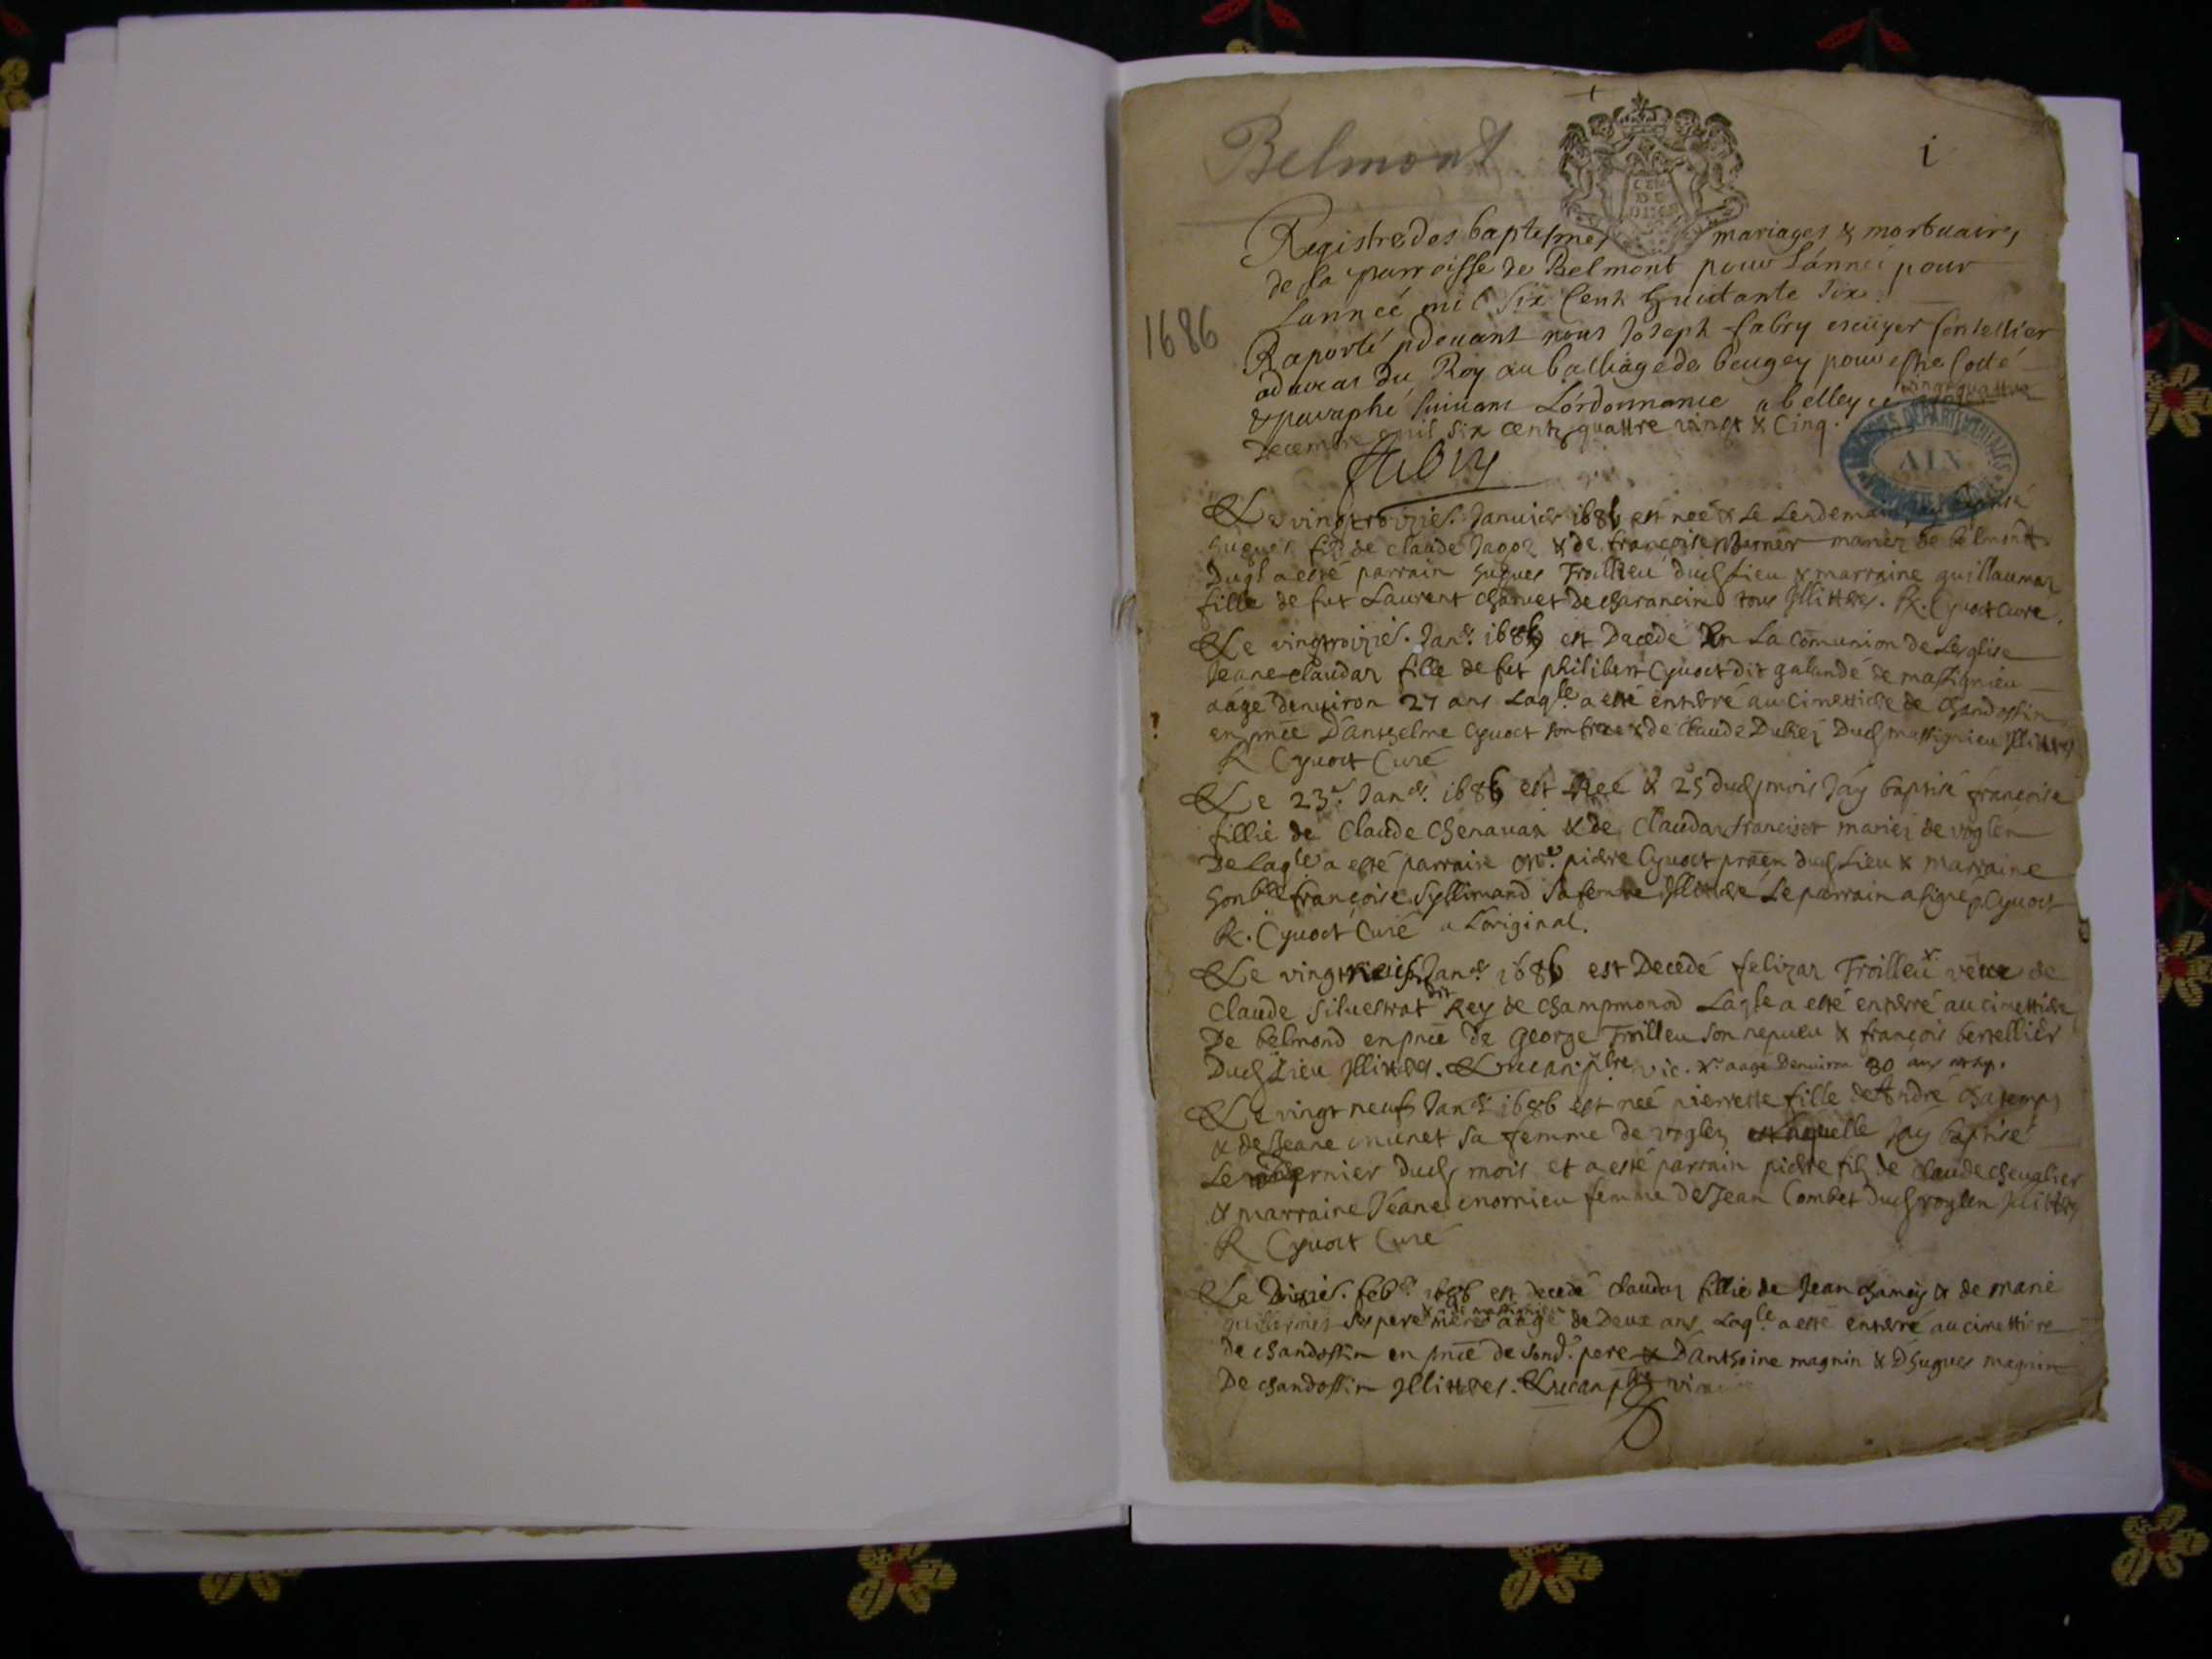 Belmont
i
1686
Registre des baptesmes mariages & mortuaires
de la parroisse de Belmont pour Lánneé pour
Lanneé mil Six Cent huictante Six.
Raporté pdeuant nous Joseph fabry escuyer Conseillier
aduocat du Roy au balliage de beugey pour estre Cotté
& paraphé suiuant Lórdonnance a belley ce vingtquattre
Decembre mil six centz quattre vingt & Cinq.
fabry
ARCHIVES DEPARTEMENTALES
AIN
Le vingtroizies. Januier 1686 est neé & Le Lendemain
hugues filz de claude Jagoz & de françoise mariez de belmont
Duql a esté parrain hugues Troillieu dud Lieu & marraine guillaumaz
fille de fut Laurent charuet de charancin tous Jllittres. R. Cyuoct Curé.
Le vingtroizies. Janer. 1686 est Decedé En La Comunion de Lesglise
Jeane claudaz fille de fut philibert Cyuoct dit galandé de massignieu
aágé denuiron 27 ans Laqle. a esté enterré au Cimettiere de Chandossin
en pnce Dantzelme Cyuoct son frere & de Claude Dud massignieu Jllittres
R Cyuoct Curé
Le 23e. Janer. 1686 est Neé & 25 dud mois Jáy baptisé françoise
fillie de Claude Chenauaz & de Claudaz franciset mariez de voglen
De Laqle a esté parrain Me. pierre Cyuoct dud Lieu & marraine
honble françoise Syllimand sa femme Jllitteré Le parrain a signé p Cyuoct
R. Cyuoct Curé a Loriginal.
Le vingt Janer 1686 est Decedé felizaz Troilleu x veue de
Claude Siluestrat dit Rey de champmonod Laqle a esté enterré au cimettiere
De belmond en pnce de George Troilleu son nepueu & françois bertellier
Dud Lieu Jllittres. vic. x aagé Denuiron 80 ans
Le vingt neuf Janer 1686 est neé pierrette fille de André
& de Jeane munet sa femme de voglen laquelle Jay baptisé
Le dernier dud mois et a esté parrain pierre filz de claude cheualier
& marraine Jéane mornieu femme de Jean Combet dud voglen Jllittres
R Cyuoct Curé
Le feber. 1686 est decedé claudaz fillie de Jean chamey & de marie
ses pere & mere de massignieu aagé de Deux ans Laqle a esté enterré au cimettiere
de chandossin en pnce de sond. pere & Danthoine magnin & Dhugues magnin
De chandossin Jllittres.